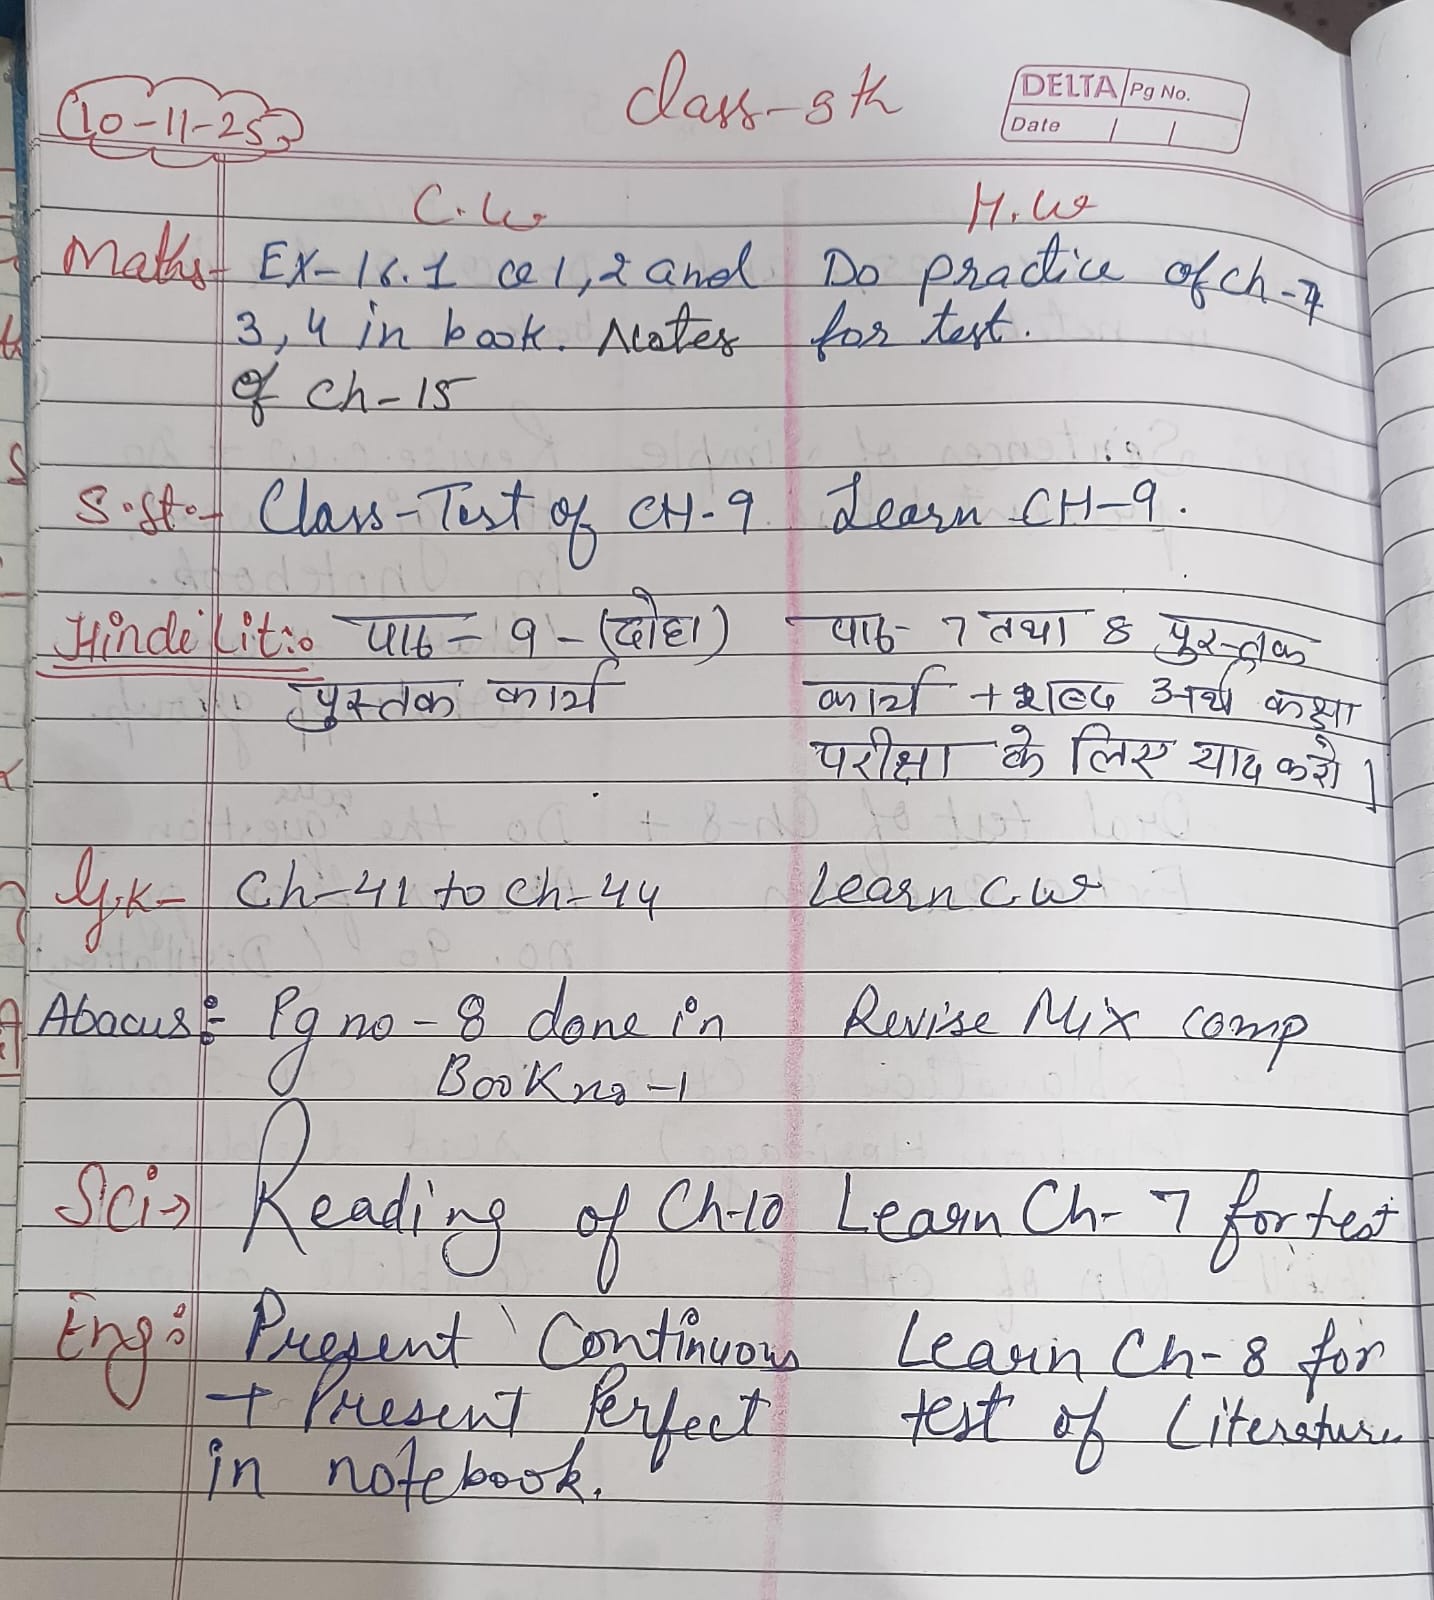 10-11-25
Class-8th
DELTA Pg No.
Date / /
C.W H.W
Maths- EX-16.1 1,2 and Do practice of ch-7
3,4 in book. Notes for test.
of ch-15
S.St.- Class-Test of CH-9 Learn CH-9.
Hinde Lit: पाठ- 9-(दोहा) पाठ- 7 तथा 8 पुस्तक
पुस्तक कार्य कार्य + शब्द अर्थ कक्षा
परीक्षा के लिए याद करो।
G.K- Ch-41 to Ch-44 Learn C.W
Abacus:- Pg no-8 done in Revise Mix comp
Book no-1
Sci→ Reading of Ch-10 Learn Ch-7 for test
Eng: Present Continuous Learn Ch-8 for
+ Present Perfect test of Literature
in notebook.